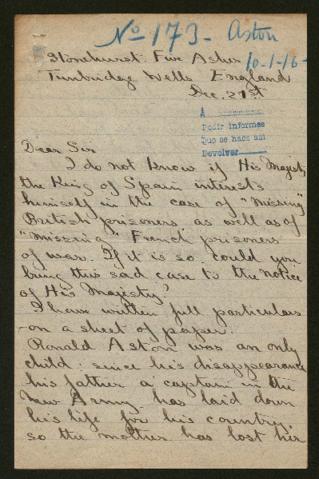 No 173 - Aston
10-1-16-
Stonehurst Five Ashes
Tunbridge Wells England
Dec. 21st
A
Pedir informes
Que se hace así
Devolver
Dear Sir
I do not know if His Majesty
the King of Spain interests
himself in the case of "missing"
British prisoners as well as of
"missing" French prisoners
of war. If it is so could you
bring this sad case to the notice
of His Majesty?
I have written full particulars
on a sheet of paper.
Ronald Aston was an only
child: since his disappearance
his father a captain in the
New Army has laid down
his life for his country,
so the mother has lost her